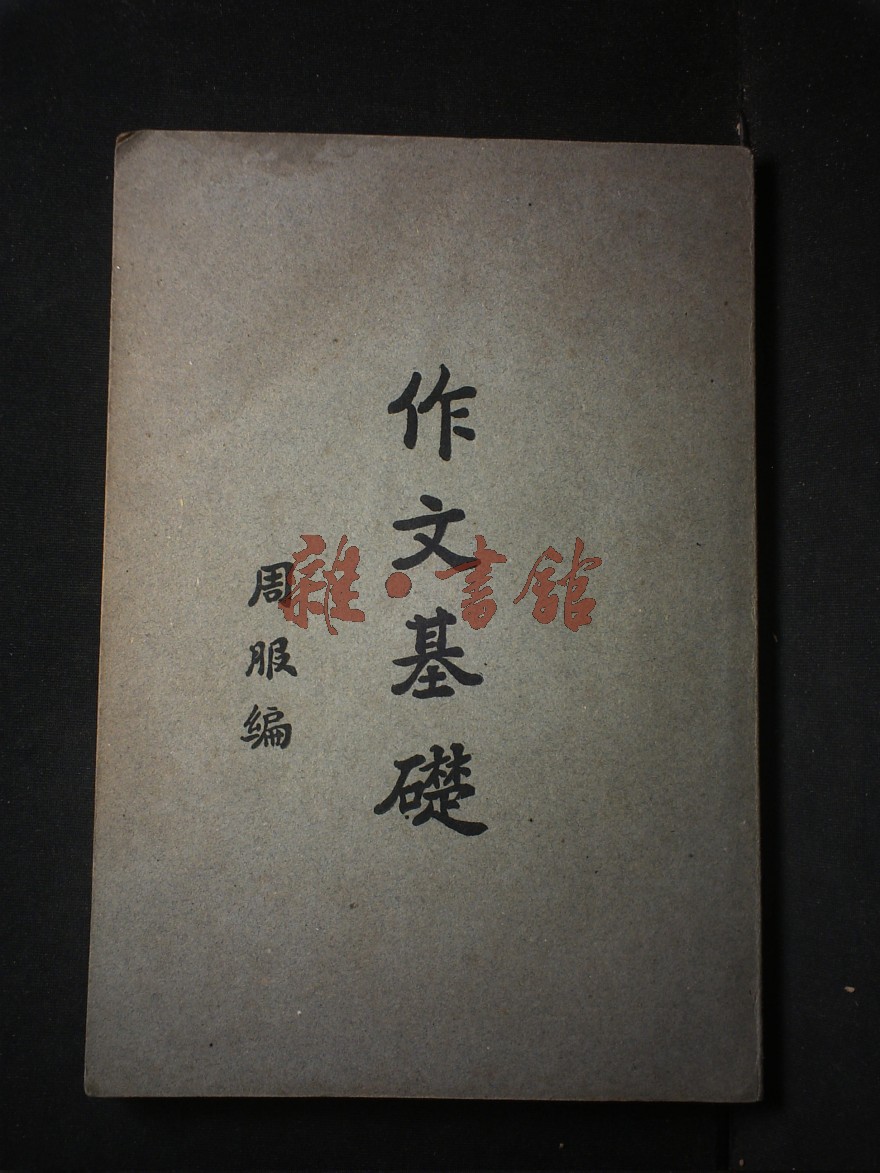 作文基礎
周服編
雜·書館